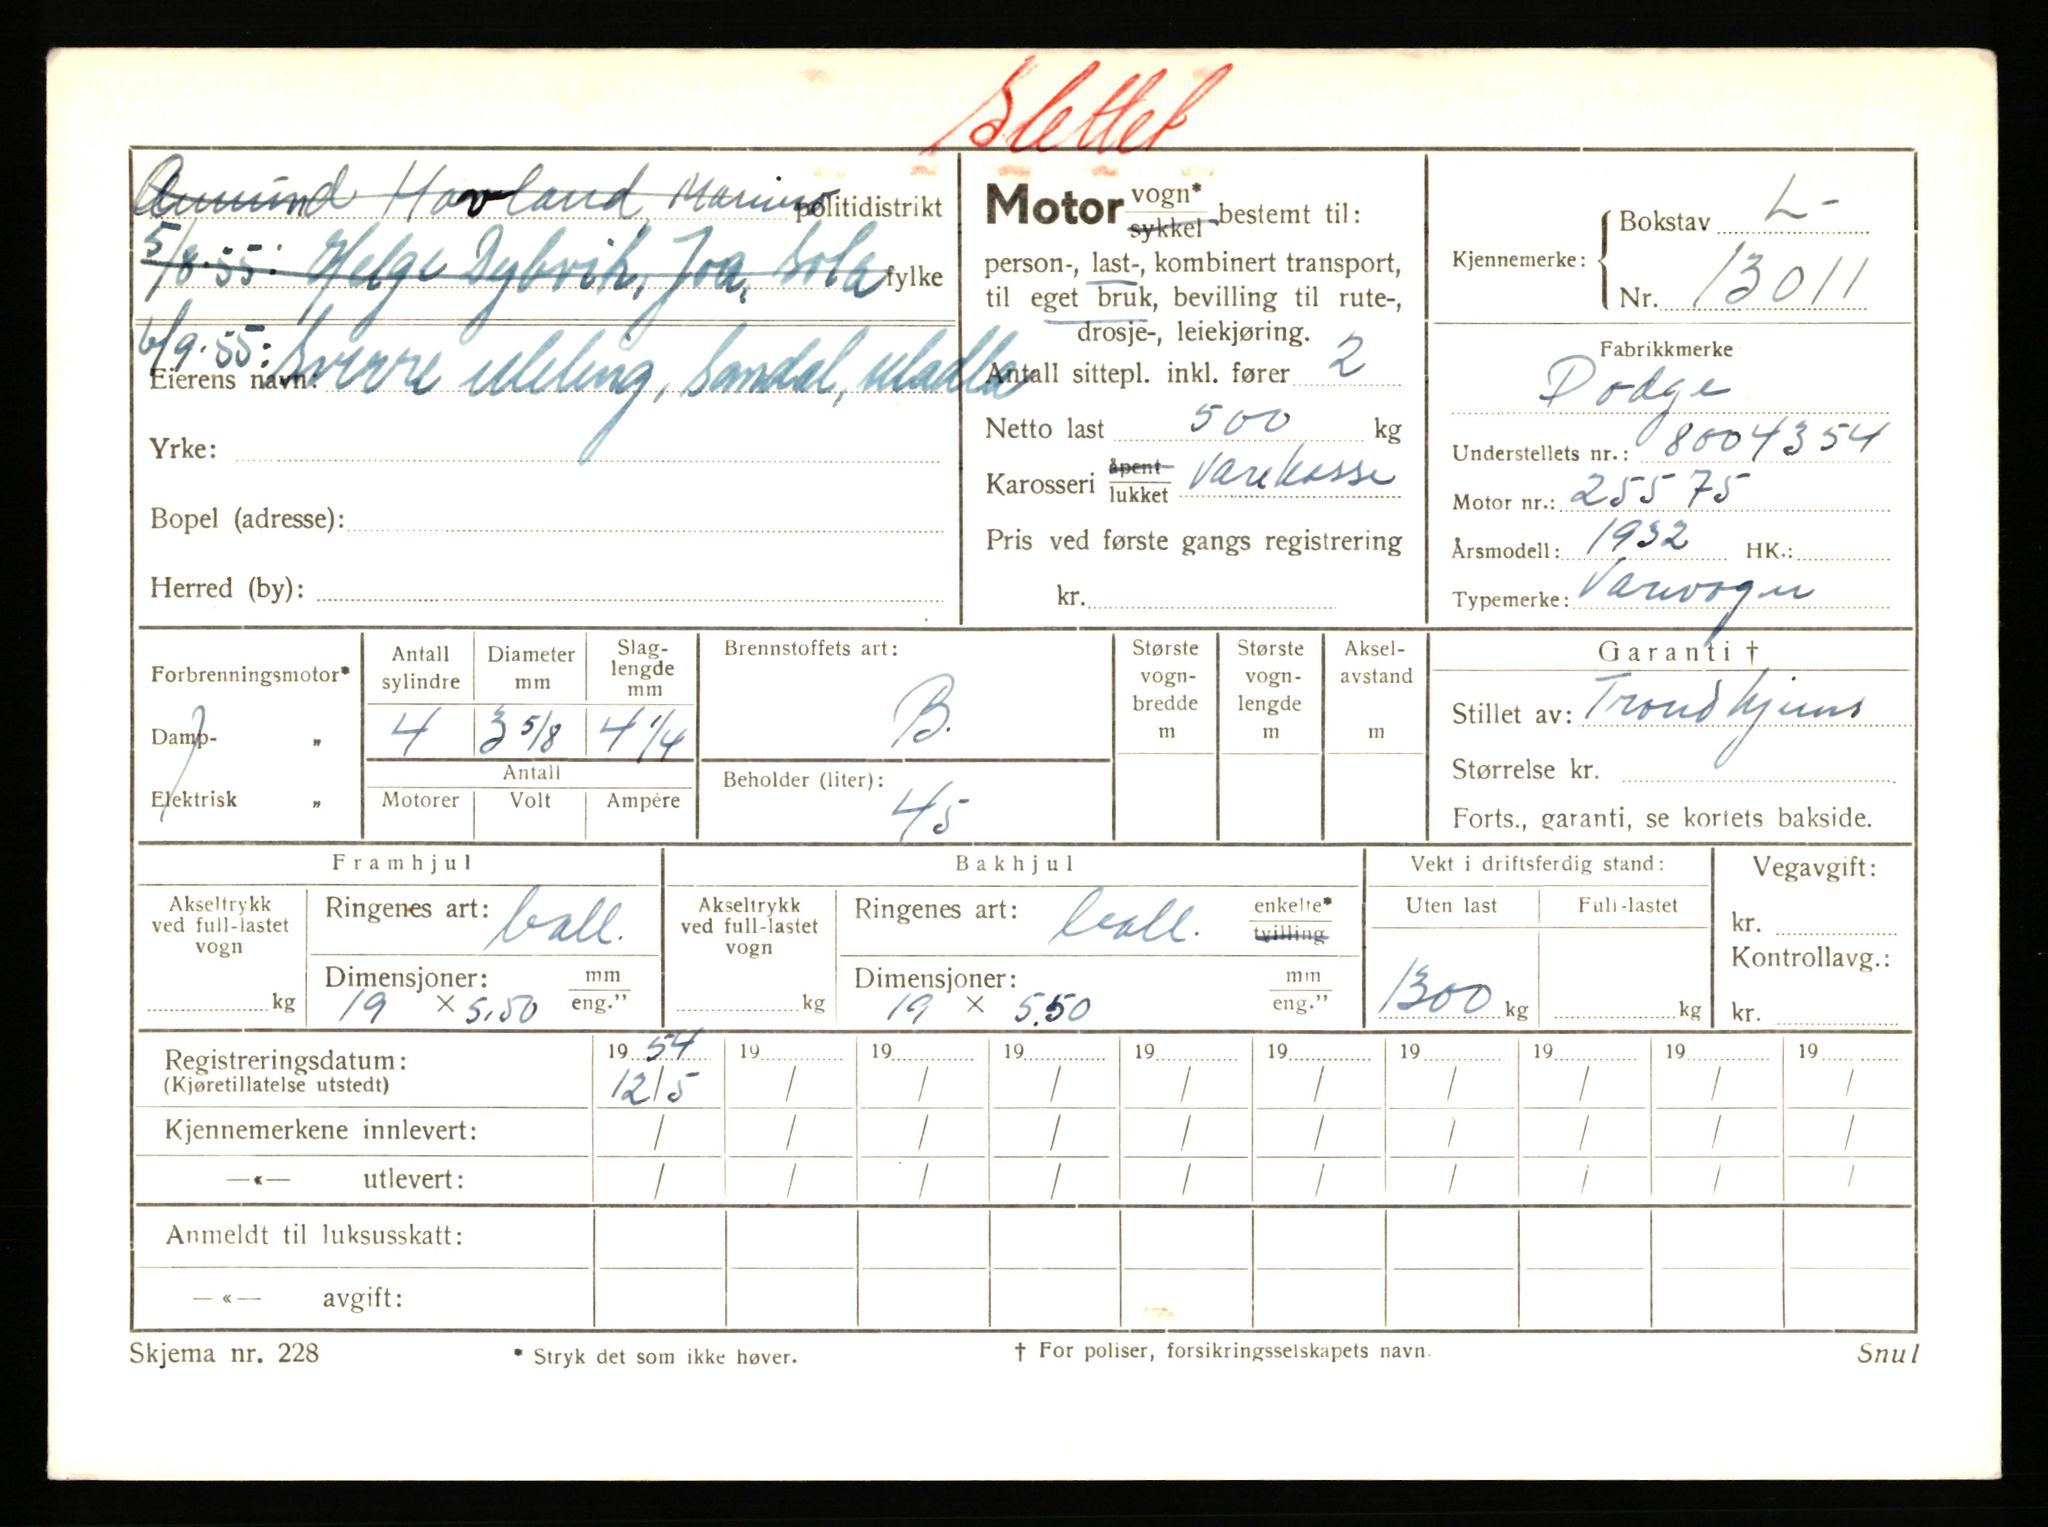 Slettet
Amund Hovland, Marius politidistrikt
5/8.55: Helge Dybvik, Joa, Sola fylke
6/9.55: Sverre Meling, Sandal, Madla
Eierens navn:
Yrke:
Bopel (adresse):
Herred (by):
Motor vogn* sykkel bestemt til:
person-, last-, kombinert transport,
til eget bruk, bevilling til rute-,
drosje-, leiekjøring.
Antall sittepl. inkl. fører 2
Netto last 500 kg
Karosseri åpent lukket Varekasse
Pris ved første gangs registrering
kr.
Kjennemerke: Bokstav L-
Nr. 13011
Fabrikkmerke
Dodge
Understellets nr.: 8004354
Motor nr.: 25575
Årsmodell: 1932 HK.:
Typemerke: Varevogn
Forbrenningsmotor*
Damp- „
Elektrisk „
Antall sylindre
4
Diameter mm
3 5/8
Slag-lengde mm
4 1/4
Antall
Motorer Volt Ampére
Brennstoffets art:
B.
Beholder (liter):
45
Største vogn-bredde m
Største vogn-lengde m
Aksel-avstand m
Garanti †
Stillet av: Trondhjems
Størrelse kr.
Forts., garanti, se kortets bakside.
Framhjul
Akseltrykk ved full-lastet vogn
kg
Ringenes art: ball.
Dimensjoner: mm
19 × 5.50 eng."
Bakhjul
Akseltrykk ved full-lastet vogn
kg
Ringenes art: ball. enkelte* tvilling
Dimensjoner: mm
19 × 5.50 eng."
Vekt i driftsferdig stand:
Uten last Full-lastet
1300 kg kg
Vegavgift:
kr.
Kontrollavg.:
kr.
Registreringsdatum: 19 54 19 19 19 19 19 19 19 19 19
(Kjøretillatelse utstedt) 12/5 / / / / / / / / /
Kjennemerkene innlevert: / / / / / / / / / /
—«— utlevert: / / / / / / / / / /
Anmeldt til luksusskatt:
—«— avgift:
Skjema nr. 228 * Stryk det som ikke høver. † For poliser, forsikringsselskapets navn. Snul